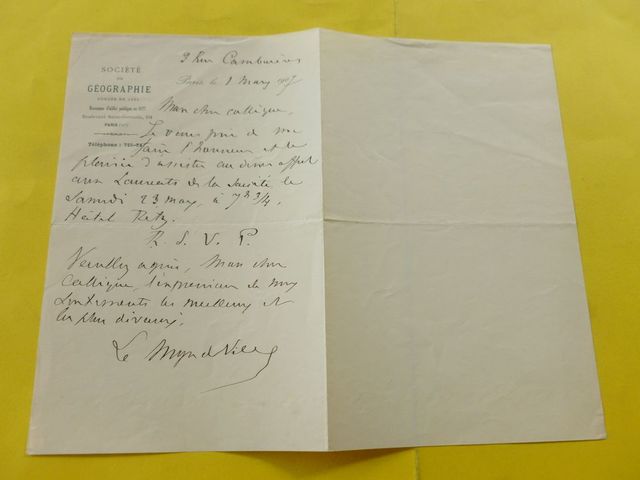 SOCIÉTÉ
DE
GÉOGRAPHIE
FONDÉE EN 1821
Reconnue d'utilité publique en 1827
Boulevard Saint-Germain, 184
PARIS
Téléphone :
9 Rue Cambacérès
Paris, le 1 Mars 1907
Mon cher collègue,
Je vous prie de me
faire l'honneur et le
plaisir d'assister au diner offert
aux Lauréats de la Société le
Samedi 23 mars, à 7h 3/4,
Hôtel Ritz.
R. S. V. P.
Veuillez agréer, Mon cher
Collègue, l'expression de mes
sentiments les meilleurs et
les plus dévoués,
Le Myre de Vilers